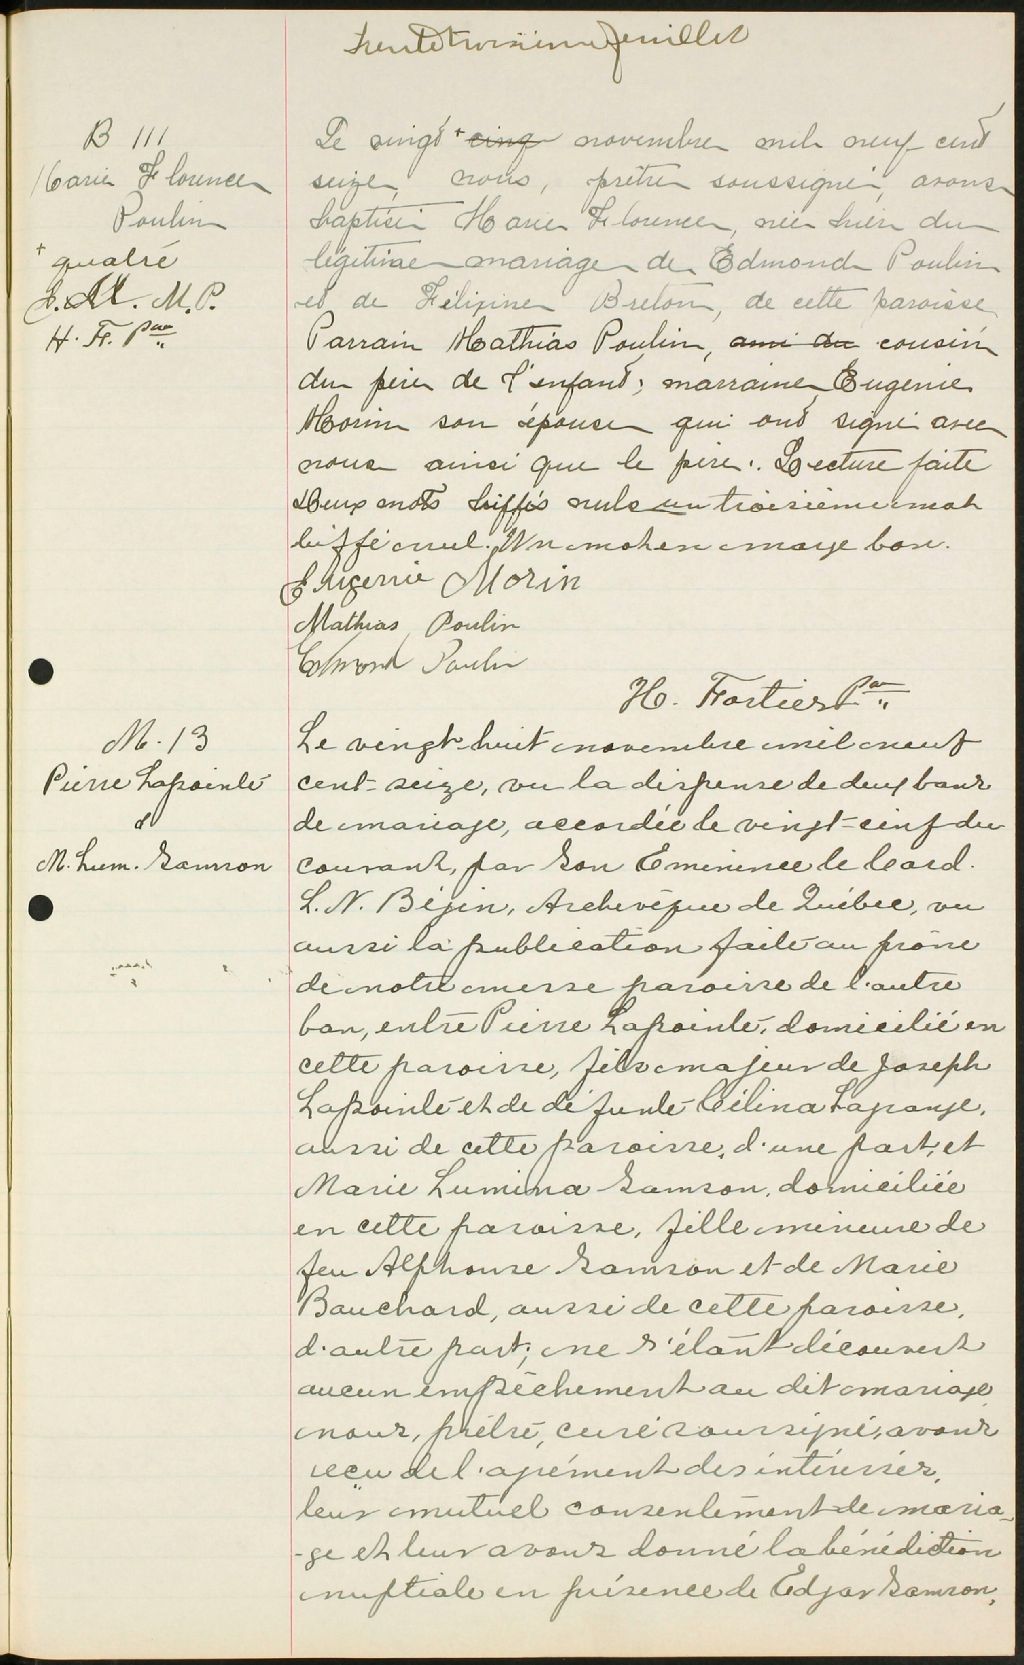 Trente troisième feuillet
B 111
Marie Florence
Poulin
+ quatre
E. M. M. P.
H. F. Ptre
Le vingt + cinq novembre mil neuf cent
seize, nous, prêtre soussigné, avons
baptisé Marie Florence, née hier du
légitime mariage de Edmond Poulin
et de Félixine Breton, de cette paroisse
Parrain Mathias Poulin, ami du cousin
du père de l'enfant; marraine Eugenie
Morin son épouse qui ont signé avec
nous ainsi que le père. Lecture faite
Deux mots biffés nuls un troisième mot
biffé nul. Un mot en marge bon.
Eugenie Morin
Mathias Poulin
Edmond Poulin
H. Fortier Ptre
M. 13
Pierre Lapointe
&
M. Lum. Samson
Le vingt-huit novembre mil neuf
cent-seize, vu la dispense de deux bans
de mariage, accordée le vingt-cinq du
courant, par Son Eminence le Card.
L. N. Bégin, Archevêque de Québec, vu
aussi la publication faite au prône
de notre messe paroisse de l'autre
ban, entre Pierre Lapointe, domicilié en
cette paroisse, fils majeur de Joseph
Lapointe et de défunte Célina Lagrange,
aussi de cette paroisse, d'une part, et
Marie Lumina Samson, domiciliée
en cette paroisse, fille mineure de
feu Alphonse Samson et de Marie
Bouchard, aussi de cette paroisse,
d'autre part; ne s'étant découvert
aucun empêchement au dit mariage
nous, prêtre, curé soussigné, avons
reçu de l'agrément des intéressés,
leur mutuel consentement de maria-
-ge et leur avons donné la bénédiction
nuptiale en présence de Edgar Samson,